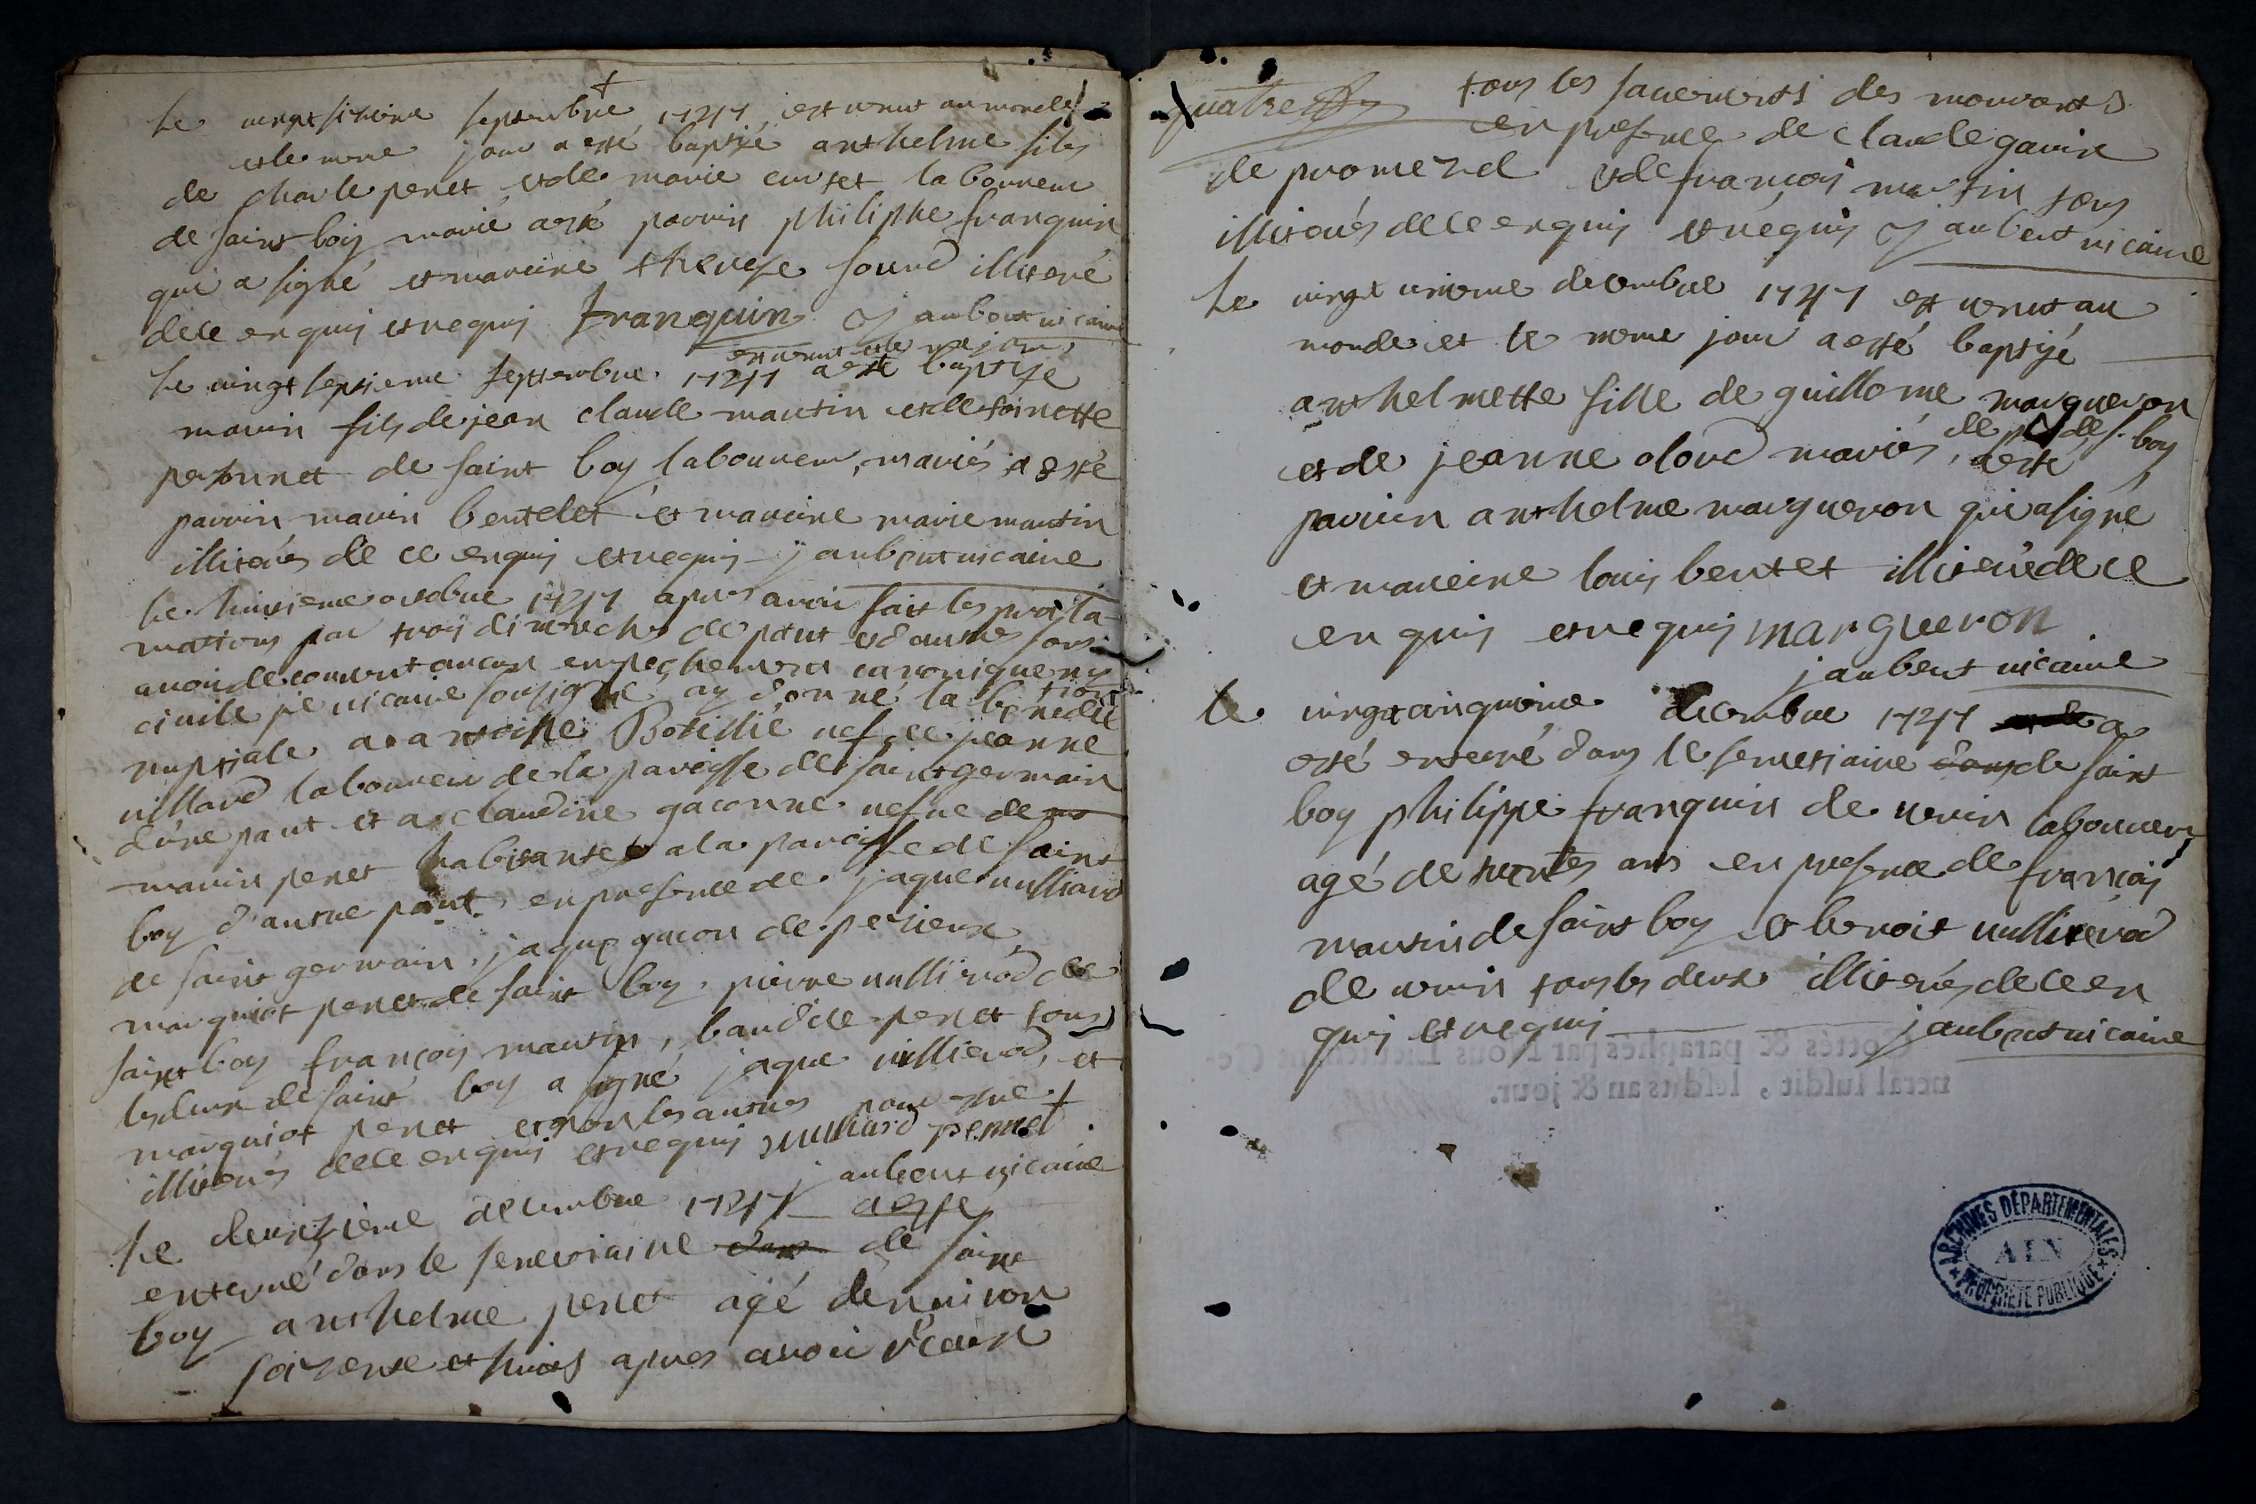 Le vingt sixieme septembre 1747 est venut au monde
et le meme jour a esté baptizé anthelme fils
de charle penet et de marie curtet laboureur
de saint boy marié a esté parrin philiphe franquin
qui a signé et mareine therese sourd illiteré
de ce enquis et requis franquin J aubert vicaire
est venut et le me jour
Le vingt septieme septembre 1747 a esté baptizé
marin fils de jean claude martin et de toinette
pertunet de saint boy laboureur, mariés a esté
parrin marin bertelet et mareine marie martin
illiterés de ce enquis et requis j aubert vicaire
le huitieme octobre 1747 apres avoir fait les procla-
mations par trois dimenches de part et d'autres sans
avoir decouvert aucun empeschement canonique ny
civile je vicaire sousigné ay donné la benedic
tion
nuptiale a antoine Botillié nef de jeanne
villard laboureur de la paroisse de saint germain
d'une part et a claudine gaconne nefue de
marin penet habitante a la paroisse de saint
boy d'autre part, en presence de jaque nulliard
de saint germain, jaque gacon de perieux,
marquiot penet de saint boy, pierre nulliérod de
saint boy françois martin, baudile penet tous
les deux de saint boy a signé jaque nulliérod, et
marquiot penet et non les autres pour estre
illiterés de ce enquis et requis J nulliard pennet
j aubert vicaire
Le deuxzieme decembre 1747 a esté
enterré dans le semetiaire dans de saint
boy anthelme penet agé denviron
soizente et huit apres avoir receu

quatre
tous les sacements des mourants
en presence de claude gavin
de promezel et de françois martin tous
illiterés de ce enquis et requis J aubert vicaire
Le vingt unieme decembre 1747 est venut au
monde et le meme jour a esté baptizé
anthelmette fille de guillome margueron
de de s. boy
et de jeanne olord mariés, a esté
parrien anthelme margueron qui a signé
et mareine louis bertet illiteré de ce
en quis et requis margueron
j aubert vicaire
le vingt cinquieme decembre 1747 a
esté enterré dans le semetiaire dans de saint
boy philippe franquin de verin laboureur
agé de trentes ans en presence de françois
martin de saint boy et benoit nulliérod
de verin tous les deux illiterés de ce en
quis et requis j aubert vicaire
Cottés & paraphés par Nous Lieutenant Ge-
neral susdit, lesdits an & jour.
ARCHIVES DÉPARTEMENTALES
AIN
PROPRIÉTÉ PUBLIQUE